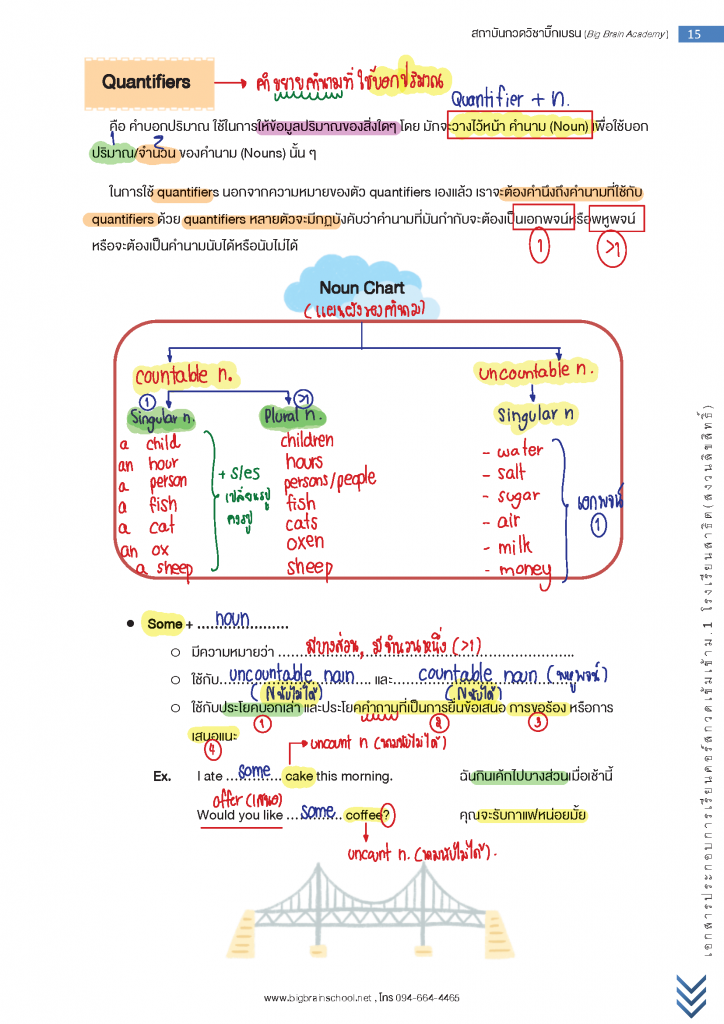 สถาบันกวดวิชาบิ๊กเบรน (Big Brain Academy) 15
Quantifiers → คำขยายคำนามที่ใช้บอกปริมาณ
Quantifier + n.
คือ คำบอกปริมาณ ใช้ในการให้ข้อมูลปริมาณของสิ่งใดๆ โดย มักจะวางไว้หน้า คำนาม (Noun) เพื่อใช้บอก
1 2
ปริมาณ/จำนวน ของคำนาม (Nouns) นั้น ๆ
ในการใช้ quantifiers นอกจากความหมายของตัว quantifiers เองแล้ว เราจะต้องคำนึงถึงคำนามที่ใช้กับ
quantifiers ด้วย quantifiers หลายตัวจะมีกฎบังคับว่าคำนามที่มันกำกับจะต้องเป็นเอกพจน์หรือพหูพจน์
หรือจะต้องเป็นคำนามนับได้หรือนับไม่ได้
1 >1
Noun Chart
(แผนผังของคำนาม)
countable n. uncountable n.
1 >1
Singular n. Plural n. Singular n
a child children - water
an hour hours - salt
a person persons/people - sugar
a fish fish - air
a cat cats - milk
an ox oxen - money
a sheep sheep
+ s/es
เปลี่ยนรูป
คงรูป
เอกพจน์
1
● Some + noun
○ มีความหมายว่า มีบางส่วน, มีจำนวนหนึ่ง (>1)
○ ใช้กับ uncountable noun และ countable noun (พหูพจน์)
(Nนับไม่ได้) (Nนับได้)
○ ใช้กับประโยคบอกเล่า และประโยคคำถามที่เป็นการยื่นข้อเสนอ การขอร้อง หรือการ
1 2 3
เสนอแนะ
4
uncount n (นามนับไม่ได้)
Ex. I ate ...some... cake this morning. ฉันกินเค้กไปบางส่วนเมื่อเช้านี้
offer (เสนอ)
Would you like ...some... coffee? คุณจะรับกาแฟหน่อยมั้ย
uncount n. (นามนับไม่ได้).
เอกสารประกอบการเรียนคอร์สกวดเข้มเข้าม.1 โรงเรียนสาธิต(สงวนลิขสิทธิ์)
www.bigbrainschool.net , โทร 094-664-4465